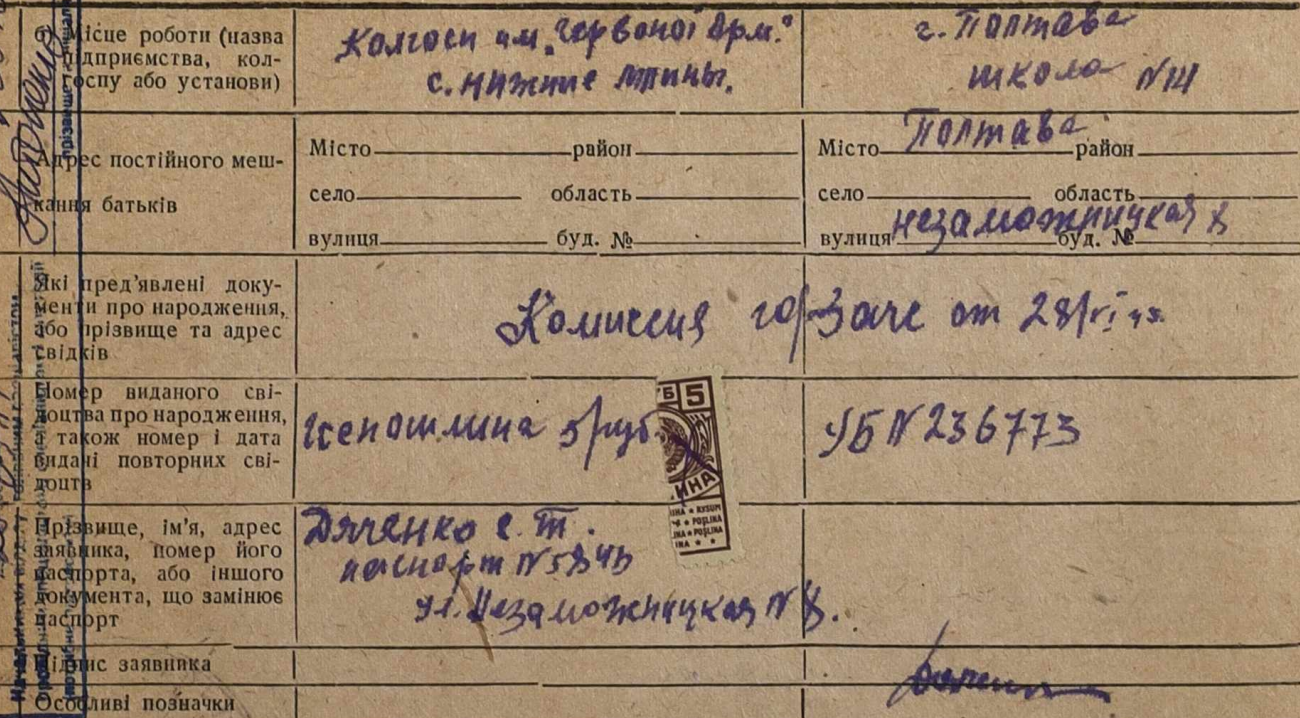 Місце роботи (назва
підприємства, кол-
госпу або установи)
Колгосп им. "Червоної Арм."
с. Нижние Млины.
г. Полтава
школа N 14
Адрес постійного меш-
кання батьків
Місто район
село область
вулиця буд. №
Місто Полтава район
село область
вулиця Незаможницкая буд. № 8
Які пред'явлені доку-
менти про народження,
або прізвище та адрес
свідків
Комиссия горЗагс от 28/VI
Номер виданого сві-
доцтва про народження,
а також номер і дата
видані повторних сві-
доцтв
Генпошлина 5 руб
5
УБ N 236773
Прізвище, ім'я, адрес
заявника, номер його
паспорта, або іншого
документа, що замінює
паспорт
Дяченко Е. Т.
паспорт N
ул. Незаможницкая N 8.
Підпис заявника
Особливі позначки